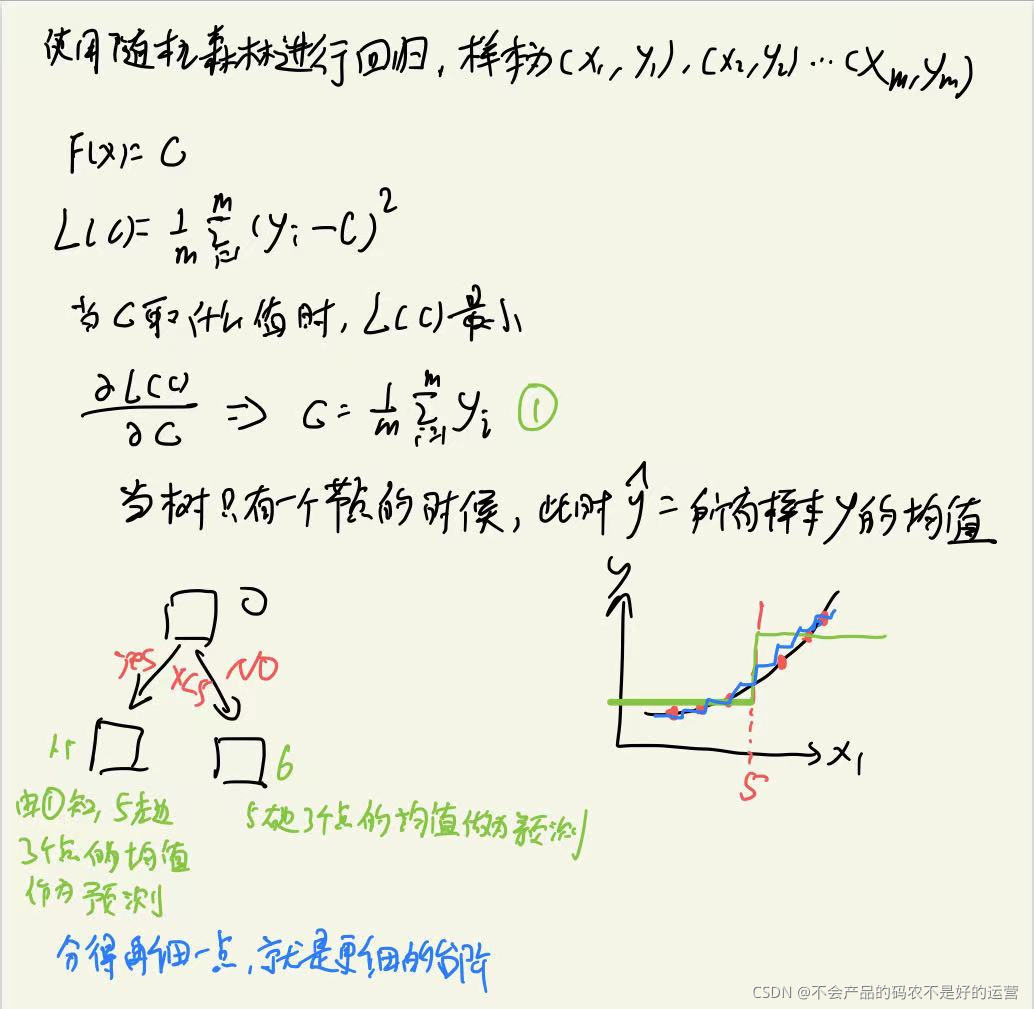 使用随机森林进行回归,样本为(x₁,y₁),(x₂,y₂)…(xₘ,yₘ)
F(x)=C
L(C)=1/m ∑_{i=1}^{m}(yᵢ-C)²
当C取什么值时,L(C)最小
∂L(C)/∂C ⇒ C=1/m ∑_{i=1}^{m} yᵢ ①
当树只有一个节点的时候,此时ŷ=所有样本y的均值
yes x<5 NO
6
由①知,5左边
3个点的均值
作为预测
5右边3个点的均值做为预测
y
x₁
5
分得再细一点,就是更细的台阶
CSDN @不会产品的码农不是好的运营